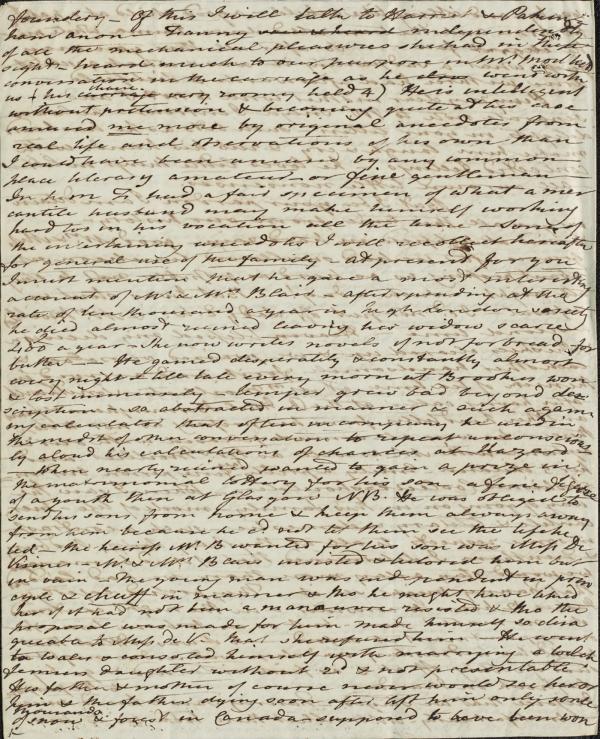 foundery – Of this I will talk to Harriet & Pakenham
ham anon – Fanny independently
of all the mechanical pleasures she had in their
sights heard much to our purpose in Mr. Mon
conversation in the carriage as he went with
us (his chaise very roomy held 4) He is intelligent
without pretension & becoming quite at his ease
amused me more by original anecdotes from
real life and observations of his own than
I could have been amused by any common
place literary amateur or fine gentleman –
In him F. had a fair specimen of what a mer
cantile husband may make himself working
hard too in his vocation all the time – Some of
the entertaining anecdotes I will recollect hereafter
for general use of the family – at present for you
I must mention that he gave a most interesting
account of Mr. & Mrs. Blair – after spending at the
rate of ten thousand a year in high London society
he died almost ruined leaving his widow scarce
400 a year – She now writes novels if not for bread for
butter – He gamed desperately & constantly almost
every night & till late every morn at Brookes won
& lost immensely – temper grew bad beyond des
cription – so abstracted in manner & such a gam
ing calculator that often in company he used in
the midst of other conversation to repeat unconscious
ly aloud his calculations of chances at Hazard
– When nearly ruined wanted to gain a prize in
the matrimonial lottery for his son a fine
of a youth then at Glasgow NB. He was obliged to
send his sons from home & keep them always away
from him because he did not let them see the life he
led – The heiress Mr. B wanted for his son was Miss De
Visme – Mr. & Mrs. Blair insisted & belored him but
in vain – The young man was independent in prin
ciple & chuff in manner & tho he might have liked
her if it had not been a manœuvre resisted & tho the
proposal was made for him made himself so disa
greeable to Miss de V. that she refused him – He went
to Wales & consoled himself with marrying a Welch
farmers daughter without 2d & not presentable
His father & mother of course never would see her or
him & the father dying soon after left him only some
thousands
of snow & forest in Canada – supposed to have been won